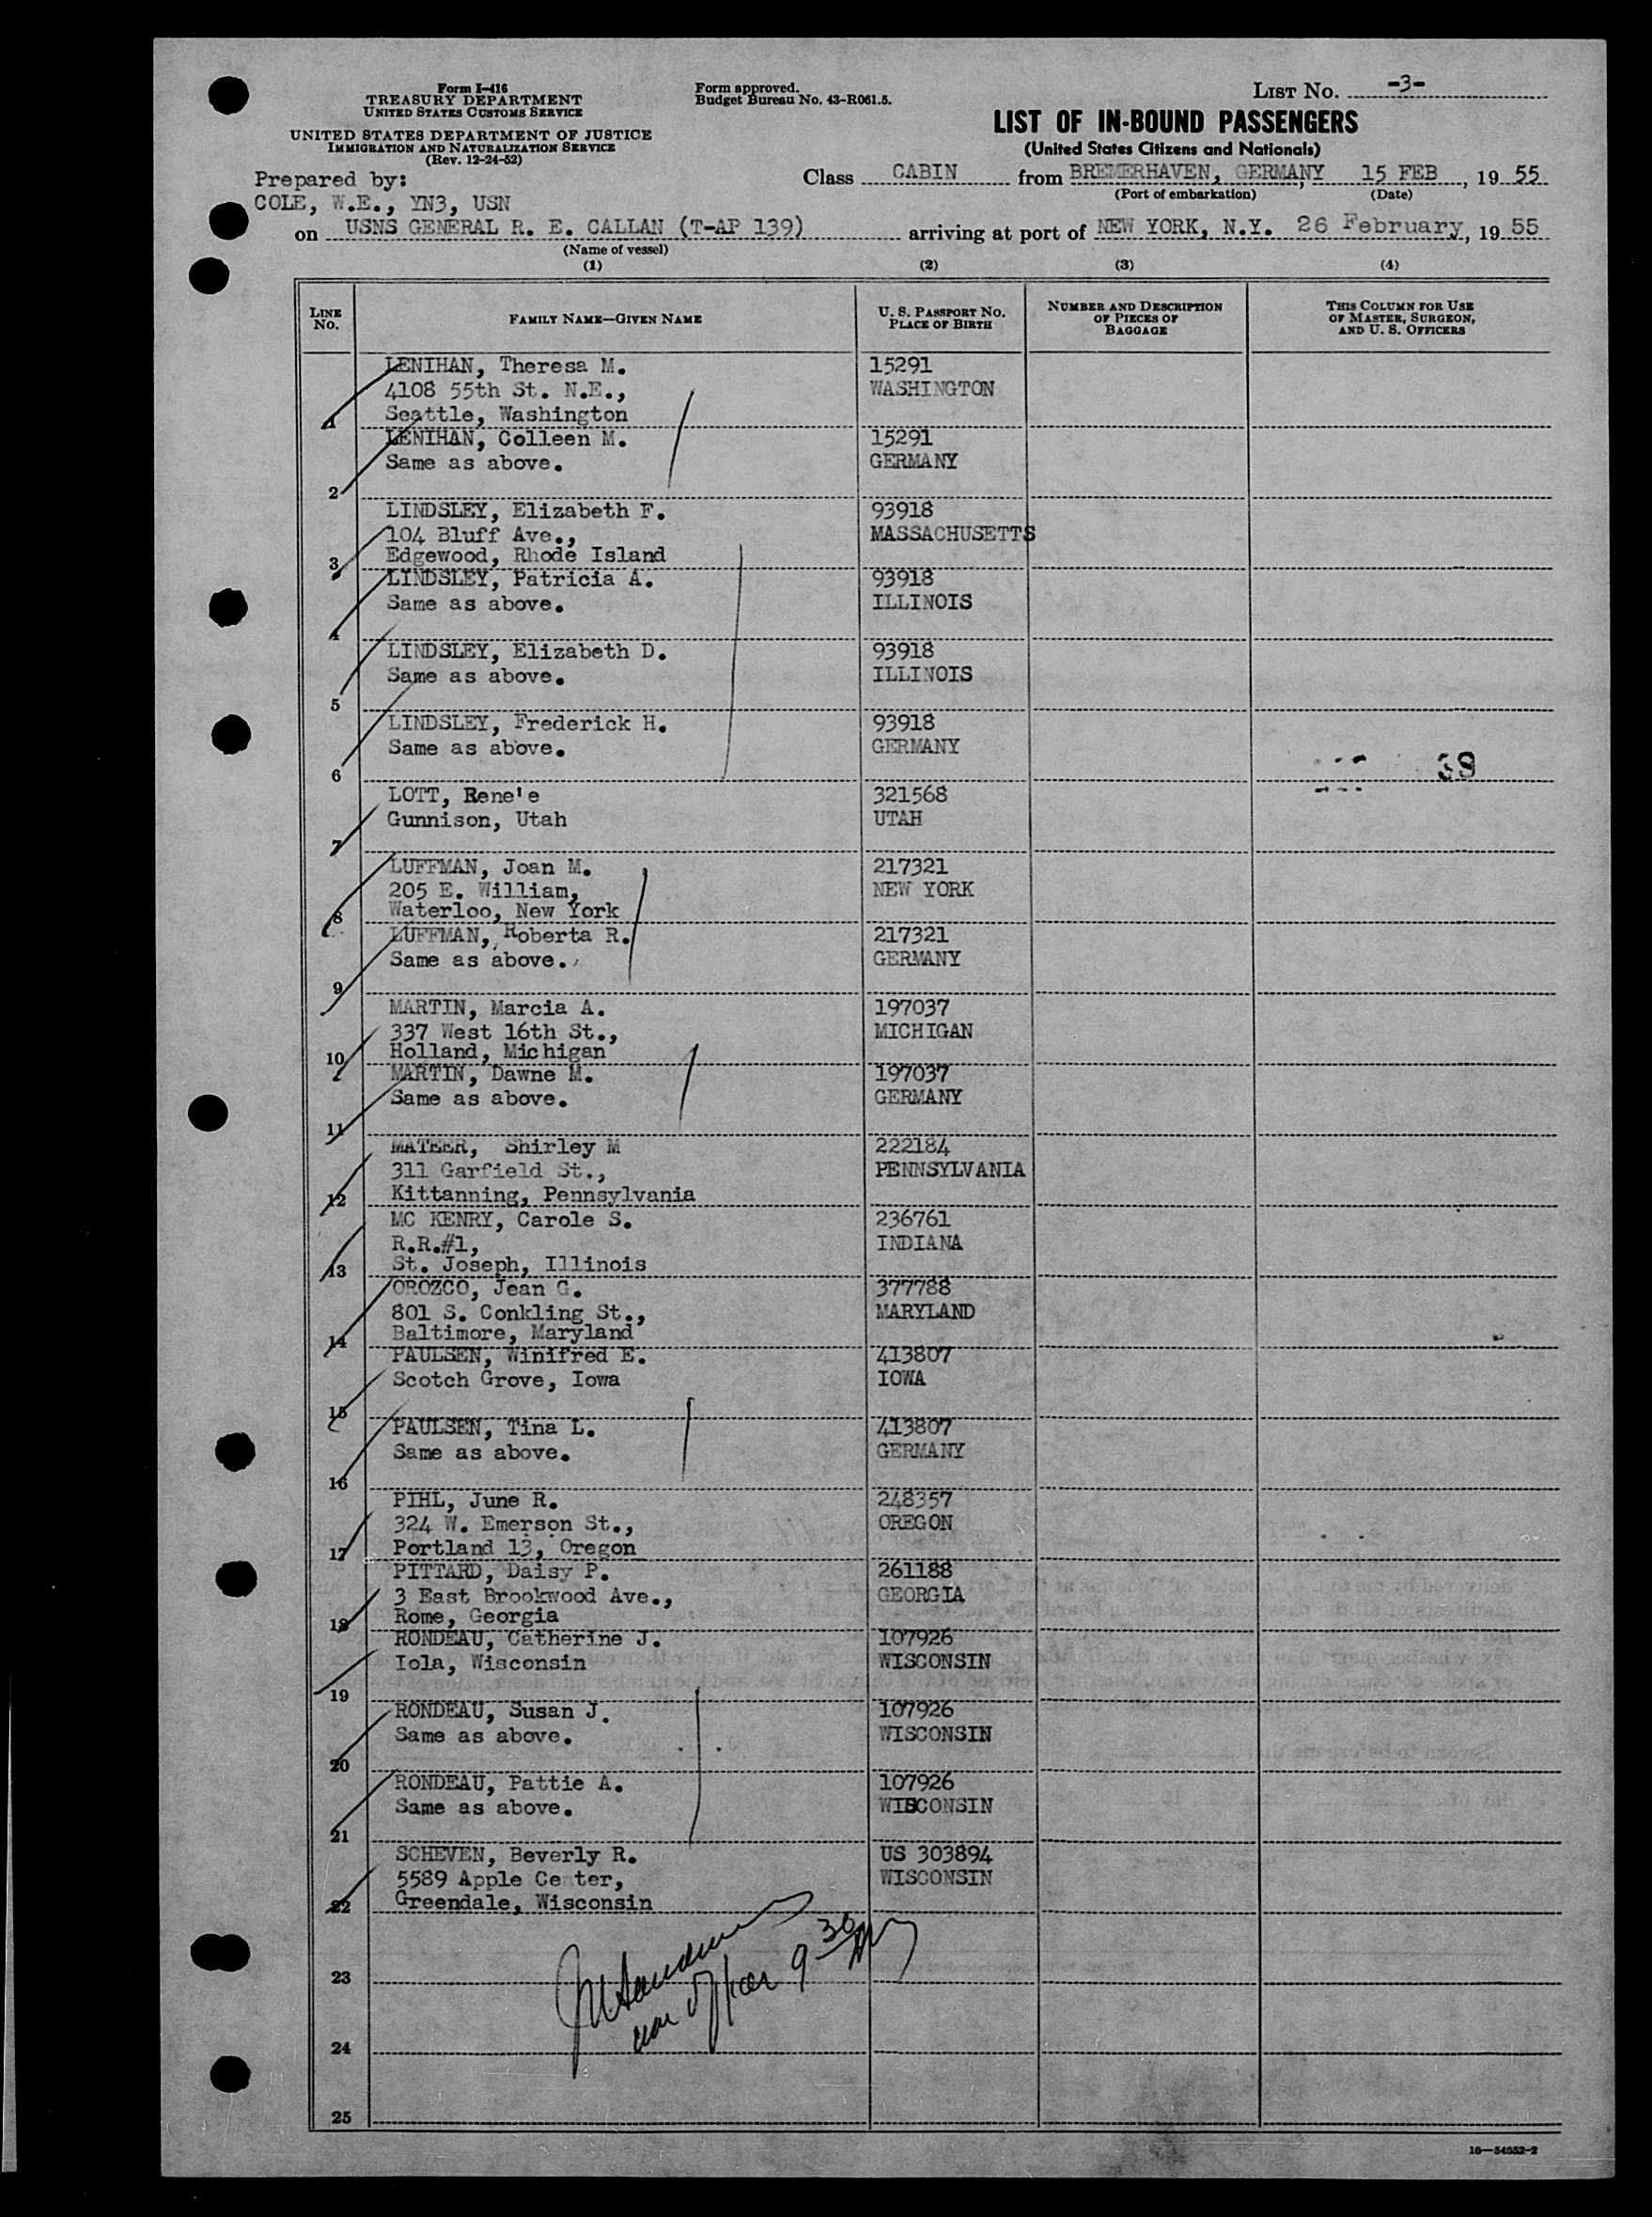 Form I-416
TREASURY DEPARTMENT
UNITED STATES CUSTOMS SERVICE
UNITED STATES DEPARTMENT OF JUSTICE
IMMIGRATION AND NATURALIZATION SERVICE
(Rev. 12-24-52)
Form approved.
Budget Bureau No. 43-R061.5.
LIST No. -3-
LIST OF IN-BOUND PASSENGERS
(United States Citizens and Nationals)
Prepared by:
COLE, W.E., YN3, USN
Class CABIN from BREMERHAVEN, GERMANY, 15 FEB, 19 55
(Port of embarkation) (Date)
on USNS GENERAL R. E. CALLAN (T-AP 139) arriving at port of NEW YORK, N.Y. 26 February, 19 55
(Name of vessel)
(1) (2) (3) (4)
LINE No. FAMILY NAME—GIVEN NAME U. S. PASSPORT No. PLACE OF BIRTH NUMBER AND DESCRIPTION OF PIECES OF BAGGAGE THIS COLUMN FOR USE OF MASTER, SURGEON, AND U. S. OFFICERS
LENIHAN, Theresa M. 15291
4108 55th St. N.E., WASHINGTON
1 Seattle, Washington
LENIHAN, Colleen M. 15291
Same as above. GERMANY
2
LINDSLEY, Elizabeth F. 93918
104 Bluff Ave., MASSACHUSETTS
3 Edgewood, Rhode Island
LINDSLEY, Patricia A. 93918
Same as above. ILLINOIS
4
LINDSLEY, Elizabeth D. 93918
Same as above. ILLINOIS
5
LINDSLEY, Frederick H. 93918
Same as above. GERMANY
6 38
LOTT, Rene'e 321568
Gunnison, Utah UTAH
7
LUFFMAN, Joan M. 217321
205 E. William, NEW YORK
8 Waterloo, New York
LUFFMAN, Roberta R. 217321
Same as above. GERMANY
9
MARTIN, Marcia A. 197037
337 West 16th St., MICHIGAN
10 Holland, Michigan
MARTIN, Dawne M. 197037
Same as above. GERMANY
11
MATEER, Shirley M 222184
311 Garfield St., PENNSYLVANIA
12 Kittanning, Pennsylvania
MC KENRY, Carole S. 236761
R.R.#1, INDIANA
13 St. Joseph, Illinois
OROZCO, Jean G. 377788
801 S. Conkling St., MARYLAND
14 Baltimore, Maryland
PAULSEN, Winifred E. 413807
Scotch Grove, Iowa IOWA
15
PAULSEN, Tina L. 413807
Same as above. GERMANY
16
PIHL, June R. 248357
324 W. Emerson St., OREGON
17 Portland 13, Oregon
PITTARD, Daisy P. 261188
3 East Brookwood Ave., GEORGIA
18 Rome, Georgia
RONDEAU, Catherine J. 107926
Iola, Wisconsin WISCONSIN
19
RONDEAU, Susan J. 107926
Same as above. WISCONSIN
20
RONDEAU, Pattie A. 107926
Same as above. WISCONSIN
21
SCHEVEN, Beverly R. US 303894
5589 Apple Center, WISCONSIN
22 Greendale, Wisconsin
9 30
23
24
25
16—54052-2